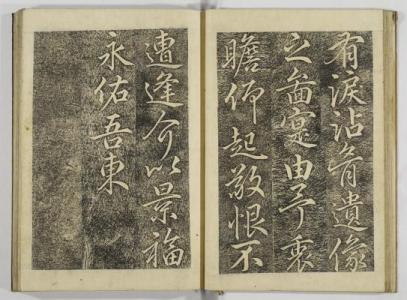 有淚沾胷遺像
之啚寔由予衷
瞻仰起敬恨不
遭逢介以景福
永佑吾東